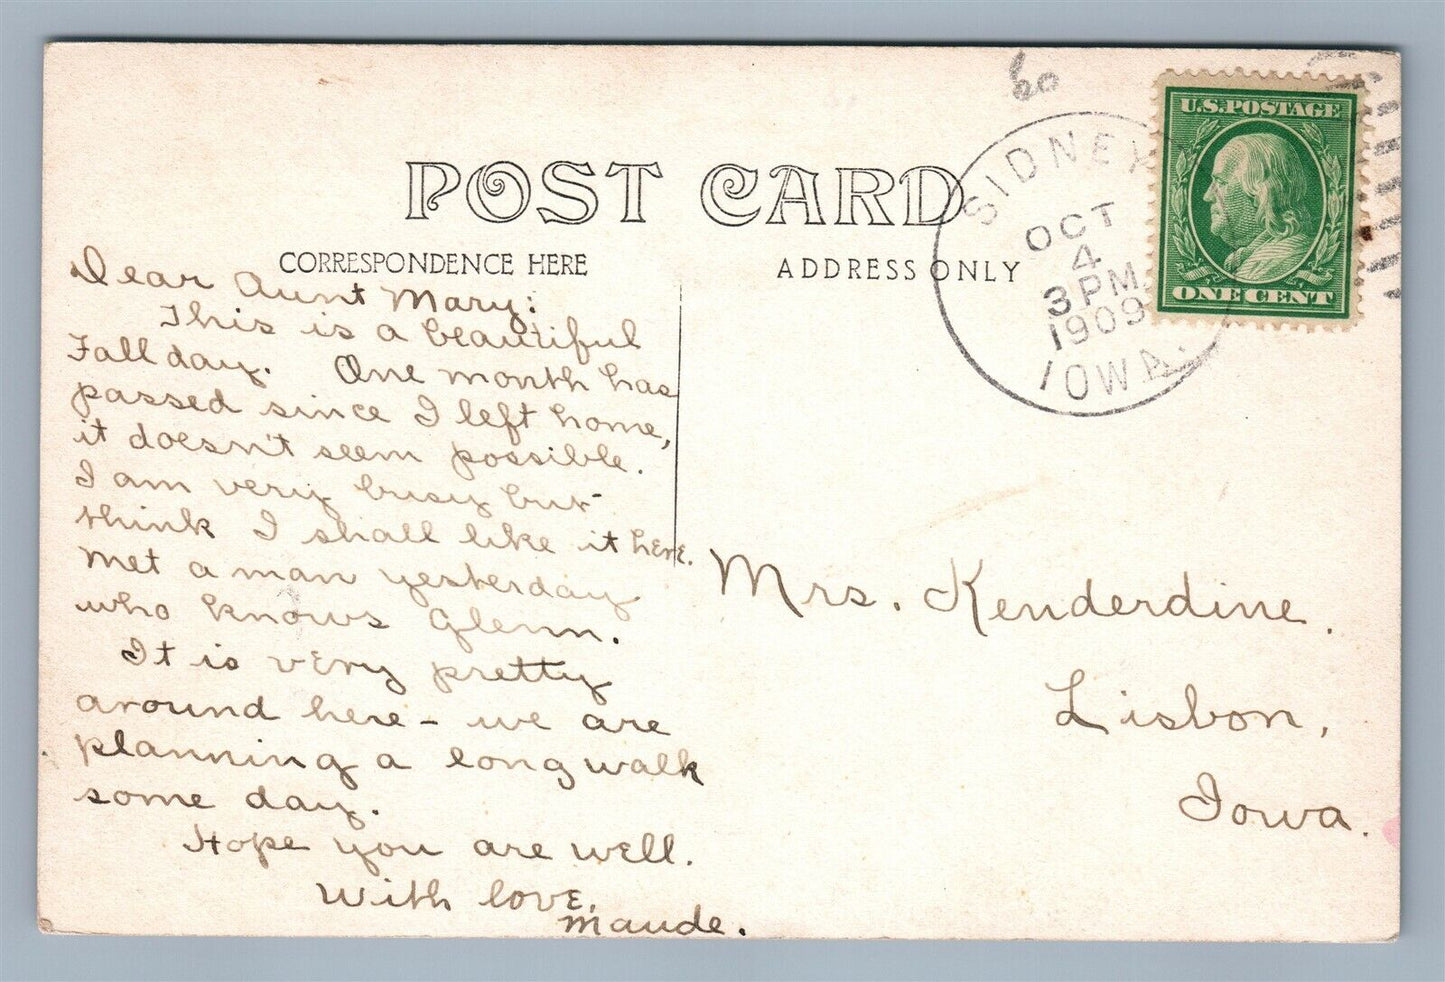 POST CARD
CORRESPONDENCE HERE
ADDRESS ONLY
U.S. POSTAGE
ONE CENT
SIDNEY
OCT
4
3 PM
1909
IOWA.
Dear Aunt Mary:
This is a beautiful
Fall day. One month has
passed since I left home,
it doesn't seem possible.
I am very busy but
think I shall like it here.
Met a man yesterday
who knows Glenn.
It is very pretty
around here - we are
planning a long walk
some day.
Hope you are well.
With love,
Maude.
Mrs. Kenderdine.
Lisbon,
Iowa.